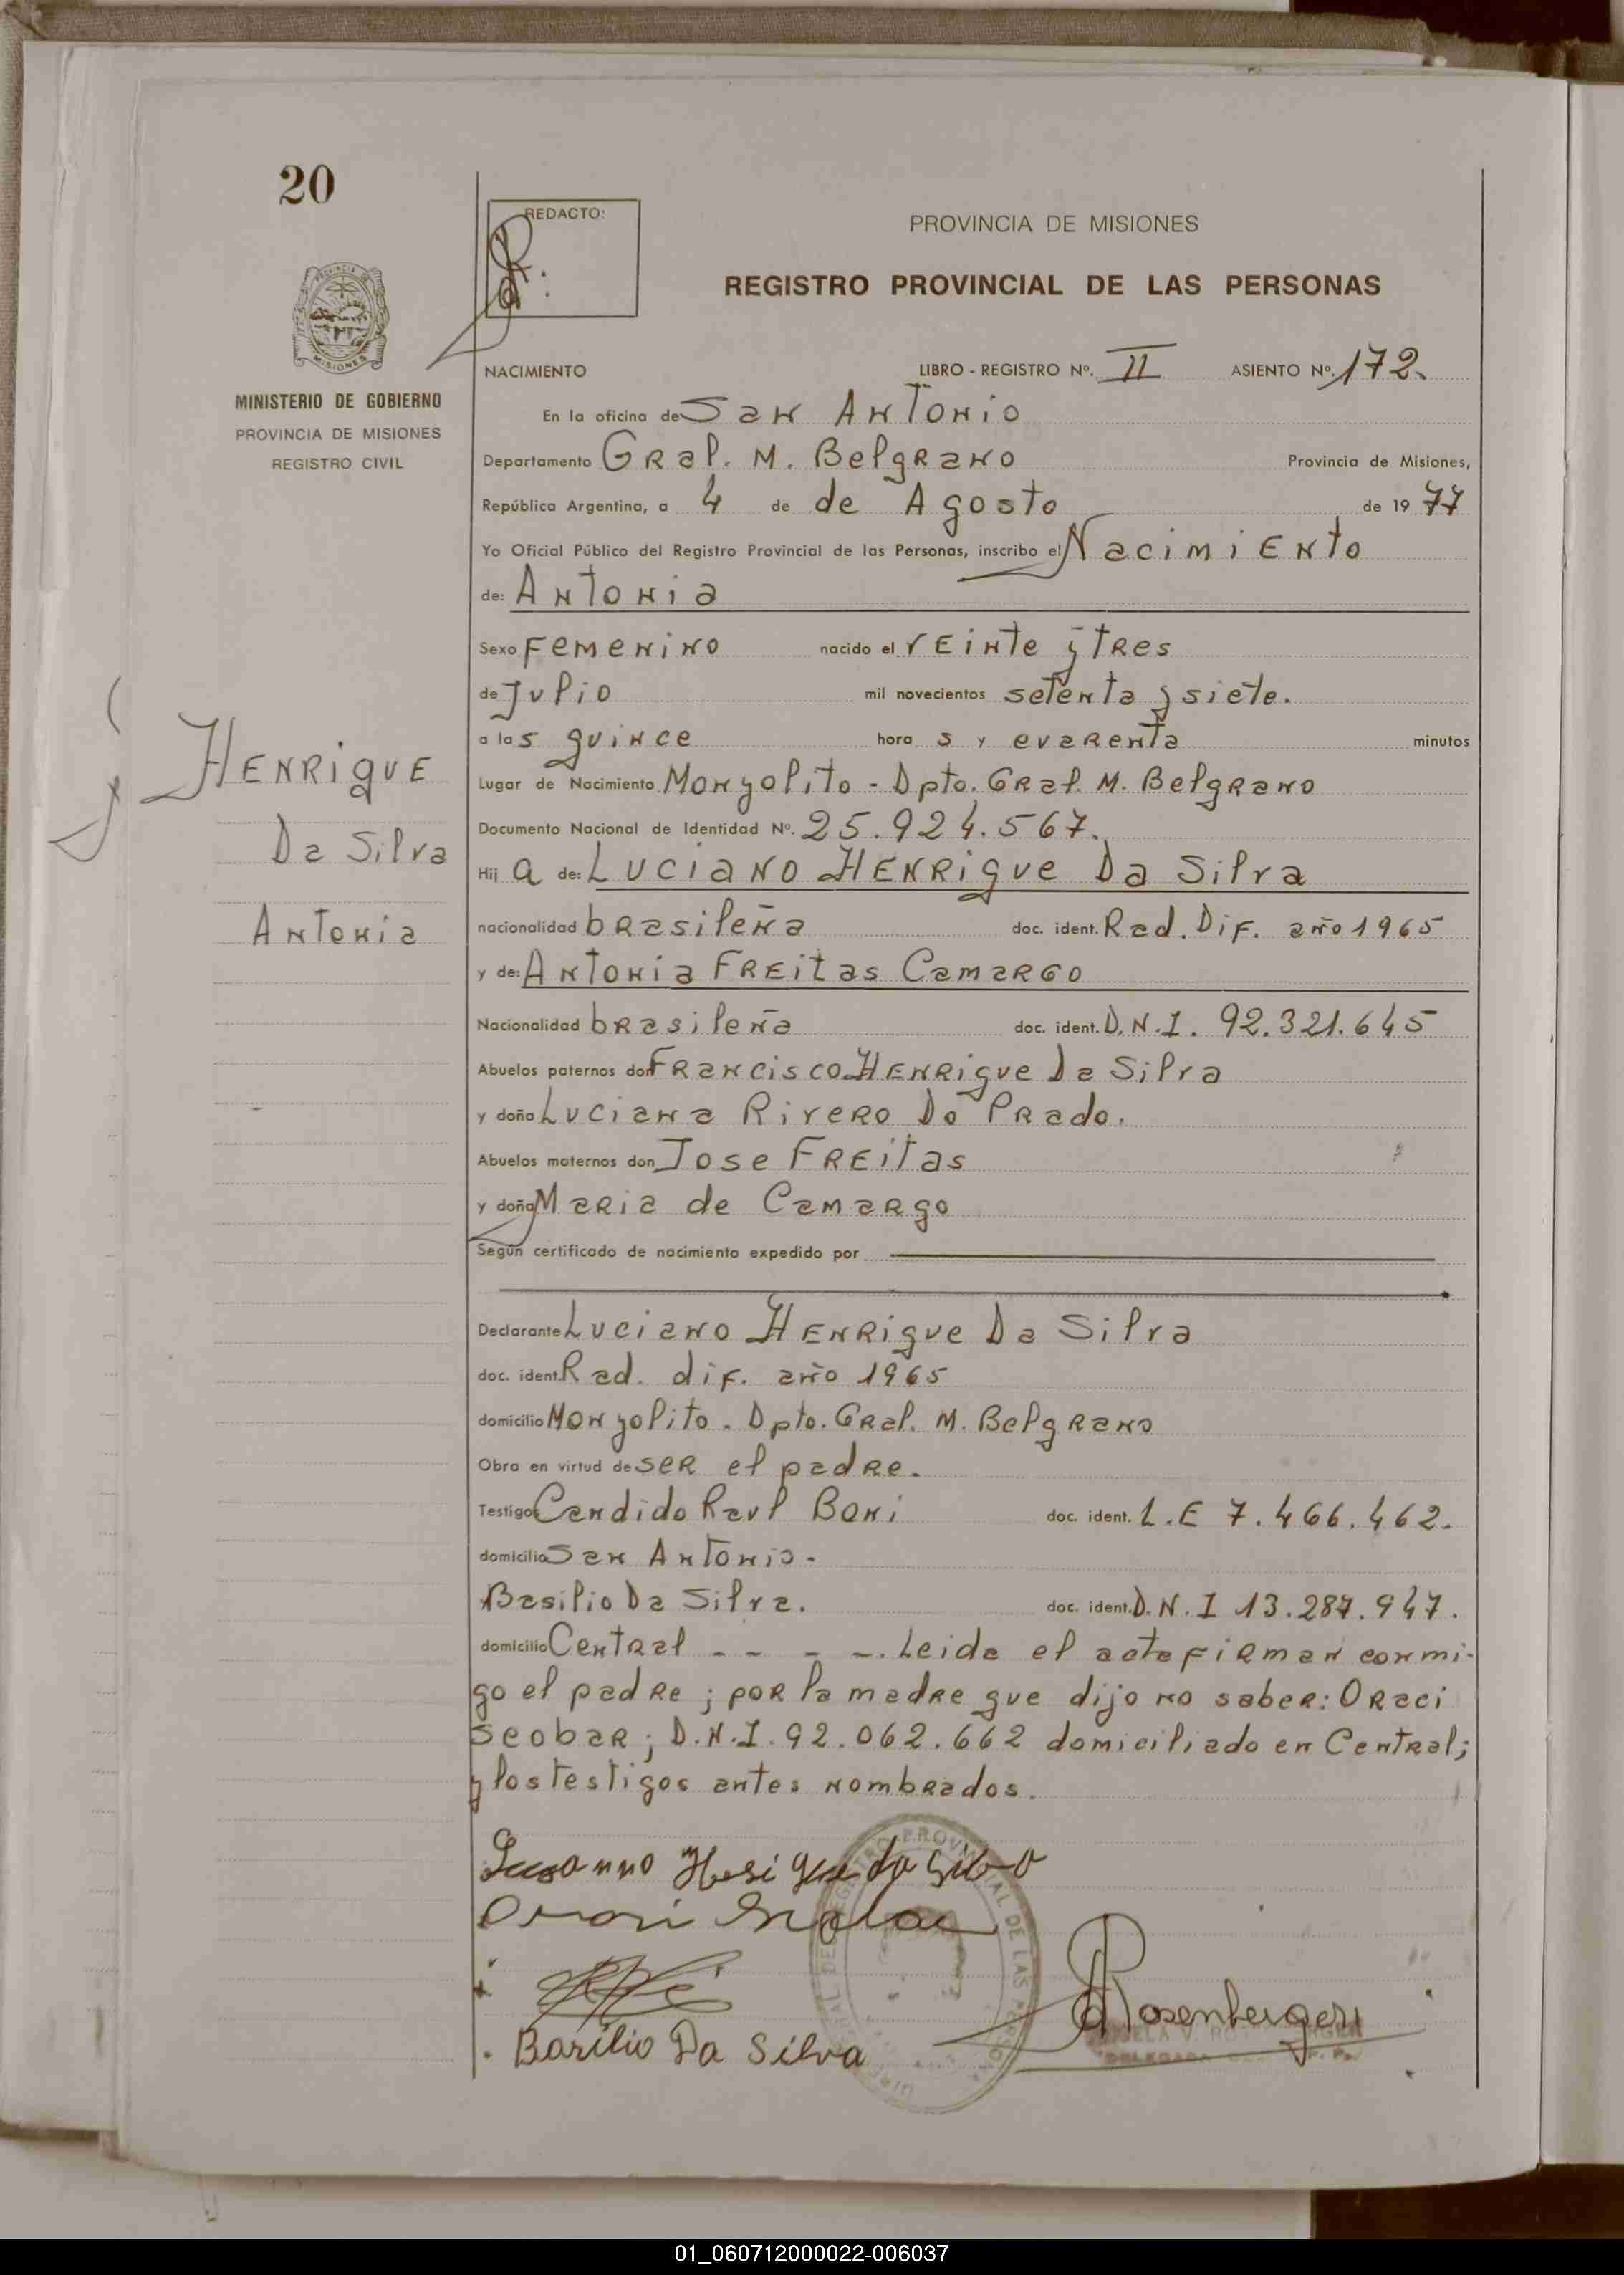 20
REDACTO:
PROVINCIA DE MISIONES
REGISTRO PROVINCIAL DE LAS PERSONAS
MINISTERIO DE GOBIERNO
PROVINCIA DE MISIONES
REGISTRO CIVIL
NACIMIENTO LIBRO - REGISTRO Nº. II ASIENTO Nº. 172.
En la oficina de San Antonio
Departamento Gral. M. Belgrano Provincia de Misiones,
República Argentina, a 4 de de Agosto de 1977
Yo Oficial Público del Registro Provincial de las Personas, inscribo el Nacimiento
de: Antonia
Sexo Femenino nacido el veinte y tres
de Julio mil novecientos setenta y siete.
a las quince hora s y cuarenta minutos
Henrique
Da Silva
Antonia
Lugar de Nacimiento Monyolito - Dpto. Gral. M. Belgrano
Documento Nacional de Identidad Nº. 25.924.567.
Hij a de: Luciano Henrique Da Silva
nacionalidad brasileña doc. ident. Rad. Dif. año 1965
y de: Antonia Freitas Camargo
Nacionalidad brasileña doc. ident. D.N.I. 92.321.645
Abuelos paternos don Francisco Henrique Da Silva
y doña Luciana Rivero Do Prado.
Abuelos maternos don Jose Freitas
y doña Maria de Camargo
Según certificado de nacimiento expedido por
Declarante Luciano Henrique Da Silva
doc. ident. Rad. dif. año 1965
domicilio Monyolito - Dpto. Gral. M. Belgrano
Obra en virtud de ser el padre.
Testigos Candido Raul Boni doc. ident. L.E 7.466.462.
domicilio San Antonio -
Basilio Da Silva. doc. ident. D.N.I 13.287.947.
domicilio Central - - - -. Leida el acta firman conmi-
go el padre; por la madre que dijo no saber: Oraci
Scobar; D.N.I. 92.062.662 domiciliado en Central;
y los testigos antes nombrados.
Basilio Da Silva
Rosenberger
01_060712000022-006037